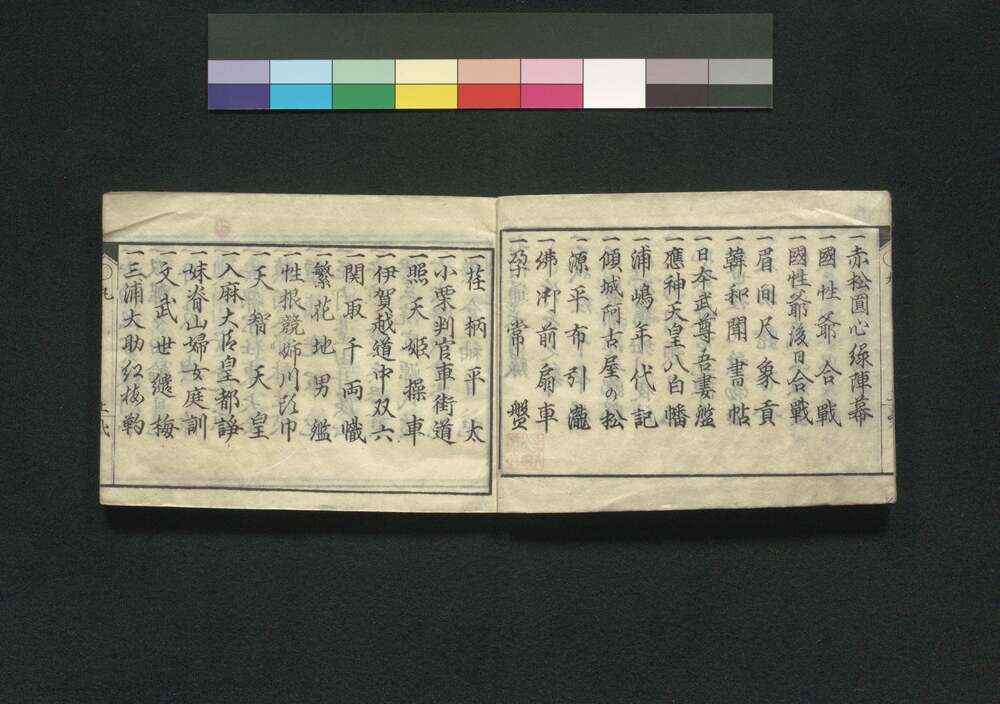 一赤松圓心緑陣幕
一國性爺合戦
一國性爺後日合戦
一眉間尺象貢
一韓和聞書帖
一日本武尊吾妻鑑
一應神天皇八白幡
一浦嶋年代記
一傾城阿古屋の松
一源平布引瀧
一佛御前扇車
一孕常盤
一荏柄平太
一小栗判官車街道
一照天姫操車
一伊賀越道中双六
一関取千両幟
一繁花地男鑑
一性根競姉川頭巾
一天智天皇
一入麻大臣皇都諍
一妹脊山婦女庭訓
一文武世継梅
一三浦大助紅梅靮